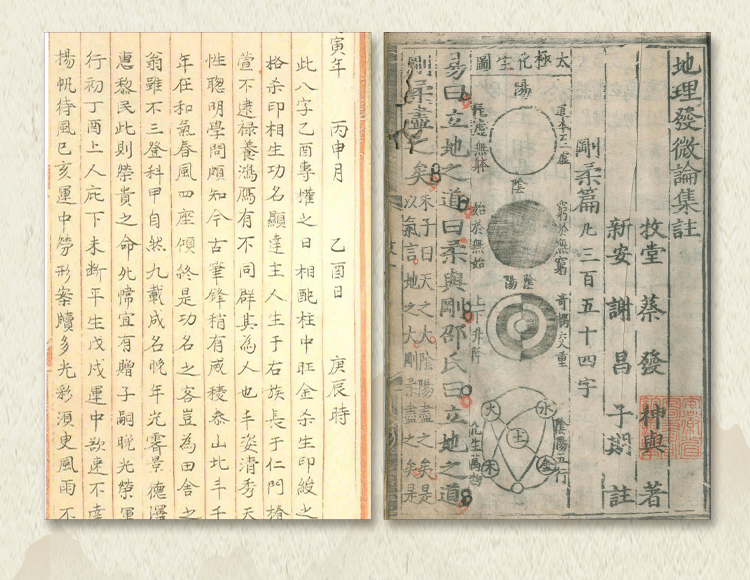 地理發微論集註
牧堂蔡發神與著
新安謝昌子期註
剛柔篇凡三百五十四字
太極化生圖
陽
陰
窮於無窮
始於無始
陰陽
上下升降
陰陽五行
化生萬物
水
火
土
金
木
易曰立地之道曰柔與剛邵氏曰立地之道
剛柔盡之矣
朱子曰天之大陰陽盡之矣是
以氣言地之大剛柔盡之矣是
寅年 丙申月 乙酉日 庚辰時
此八字乙酉專權之日相配柱中旺金杀生印綬之
格杀印相生功名顯達主人生于右族長于仁門椿
萱不逮祿養鴻鴈有不同群其為人也丰姿清秀天
性聰明學問頗知今古筆鋒稍有威稜泰山北斗千
年在和氣春風四座傾終是功名之客豈為田舍之
翁雖不三登科甲自然九載成名晚年光霽景德澤
惠黎民此則榮貴之命幃宜有贈子嗣晚光榮運
行初丁酉上人庇下未斷平生戊戌運中欲速不達
揚帆待風己亥運中勞形案牘多光彩須更風雨不